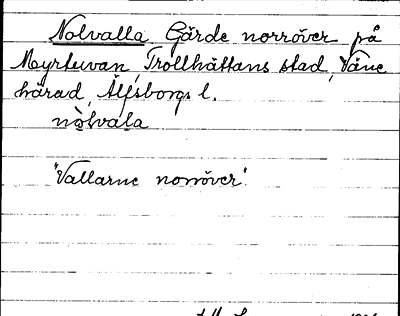 Nolvalla Gärde norröver på
Myrtuvan, Trollhättans stad, Väne
härad, Älfsborgs l.
nòlvàla
"Vallarne norröver".